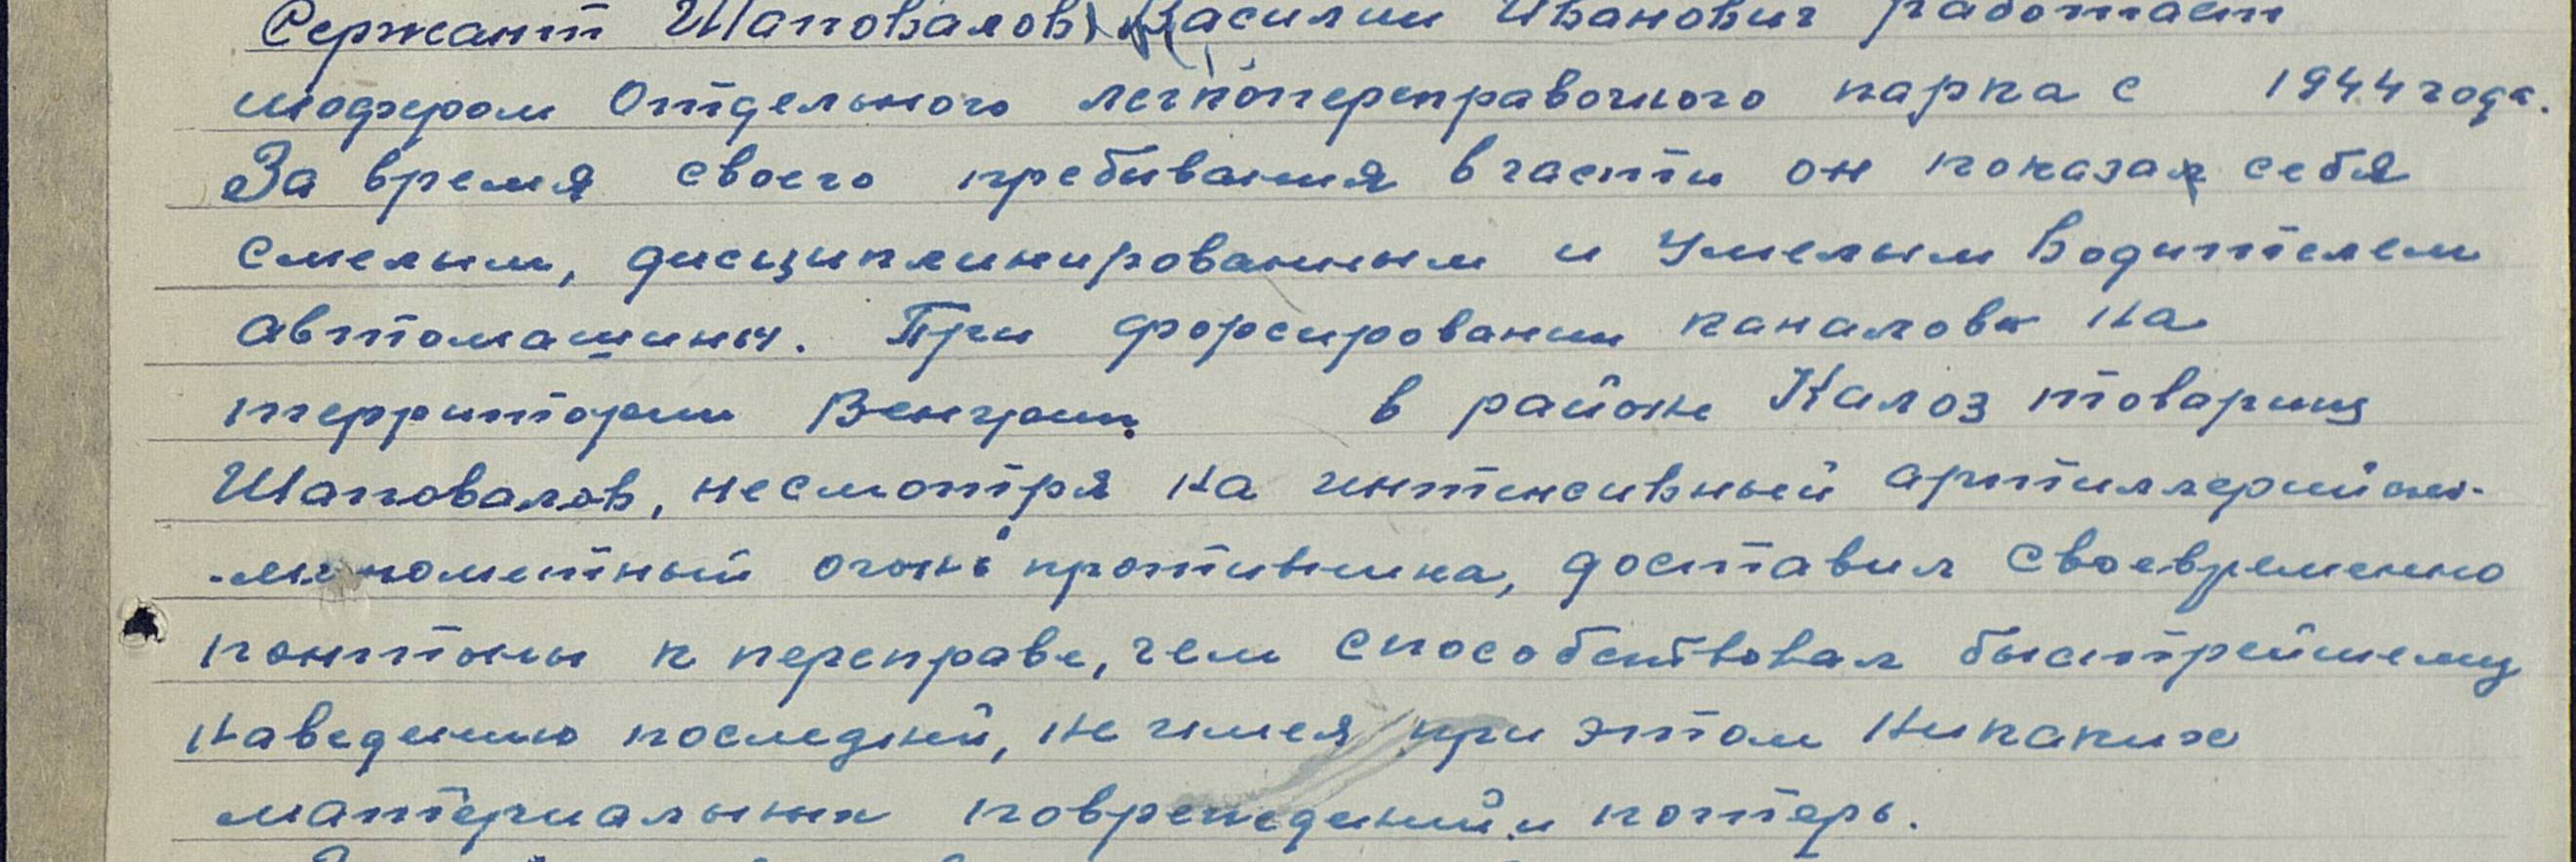 Сержант Шаповалов Василий Иванович работает
шофером Отдельного легкопереправочного парка с 1944 года.
За время своего пребывания в части он показал себя
смелым, дисциплинированным и умелым водителем
автомашины. При форсировании каналов на
территории Венгрии в районе Калоз товарищ
Шаповалов, несмотря на интенсивный артиллерийско-
-минометный огонь противника, доставил своевременно
понтоны к переправе, чем способствовал быстрейшему
наведению последней, не имея при этом никаких
материальных повреждений и потерь.